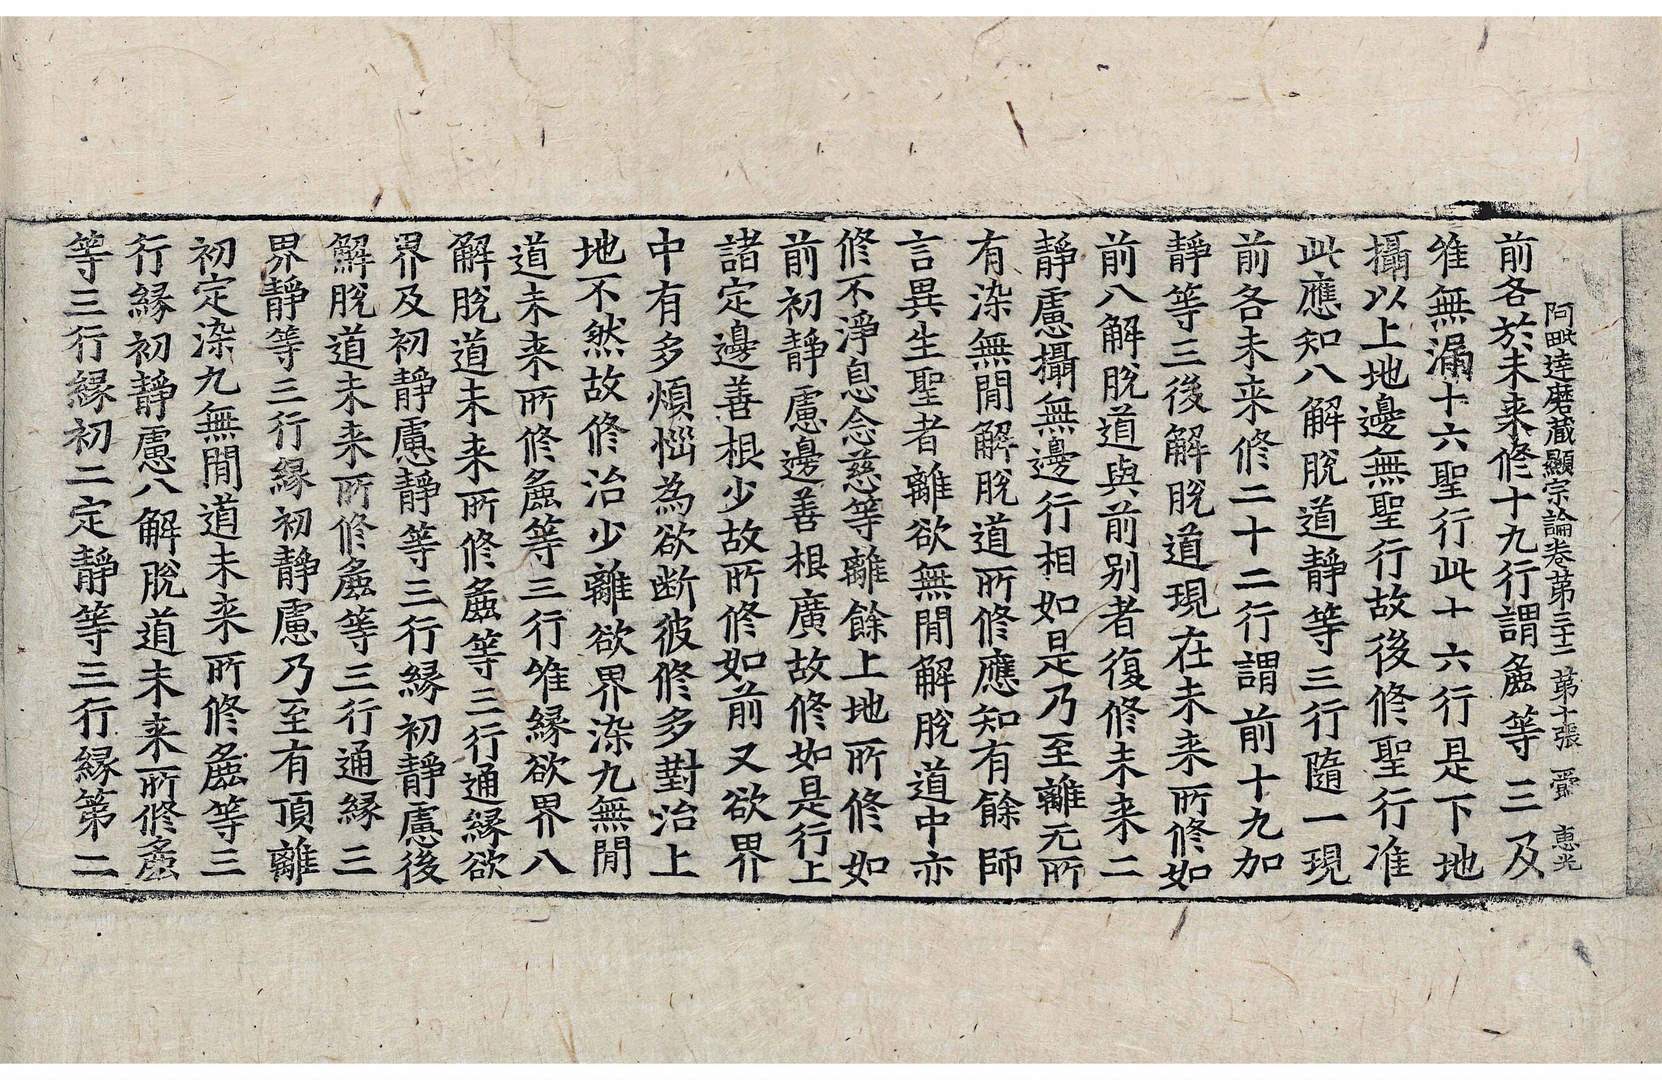 阿毗達磨藏顯宗論卷第三十二 第十張 㽞 惠光
前各於未来修十九行謂麁等三及
唯無漏十六聖行此十六行是下地
攝以上地邊無聖行故後修聖行准
此應知八解脫道靜等三行隨一現
前各未来修二十二行謂前十九加
靜等三後解脫道現在未来所修如
前八解脫道與前別者復修未来二
靜慮攝無邊行相如是乃至離无所
有染無閒解脫道所修應知有餘師
言異生聖者離欲無閒解脫道中亦
修不淨息念慈等離餘上地所修如
前初靜慮邊善根廣故修如是行上
諸定邊善根少故所修如前又欲界
中有多煩惱為欲断彼修多對治上
地不然故修治少離欲界染九無閒
道未来所修麁等三行唯緣欲界八
解脫道未来所修麁等三行通緣欲
界及初靜慮靜等三行緣初靜慮後
解脫道未来所修麁等三行通緣三
界靜等三行緣初靜慮乃至有頂離
初定染九無閒道未来所修麁等三
行緣初靜慮八解脫道未来所修麁
等三行緣初二定靜等三行緣第二